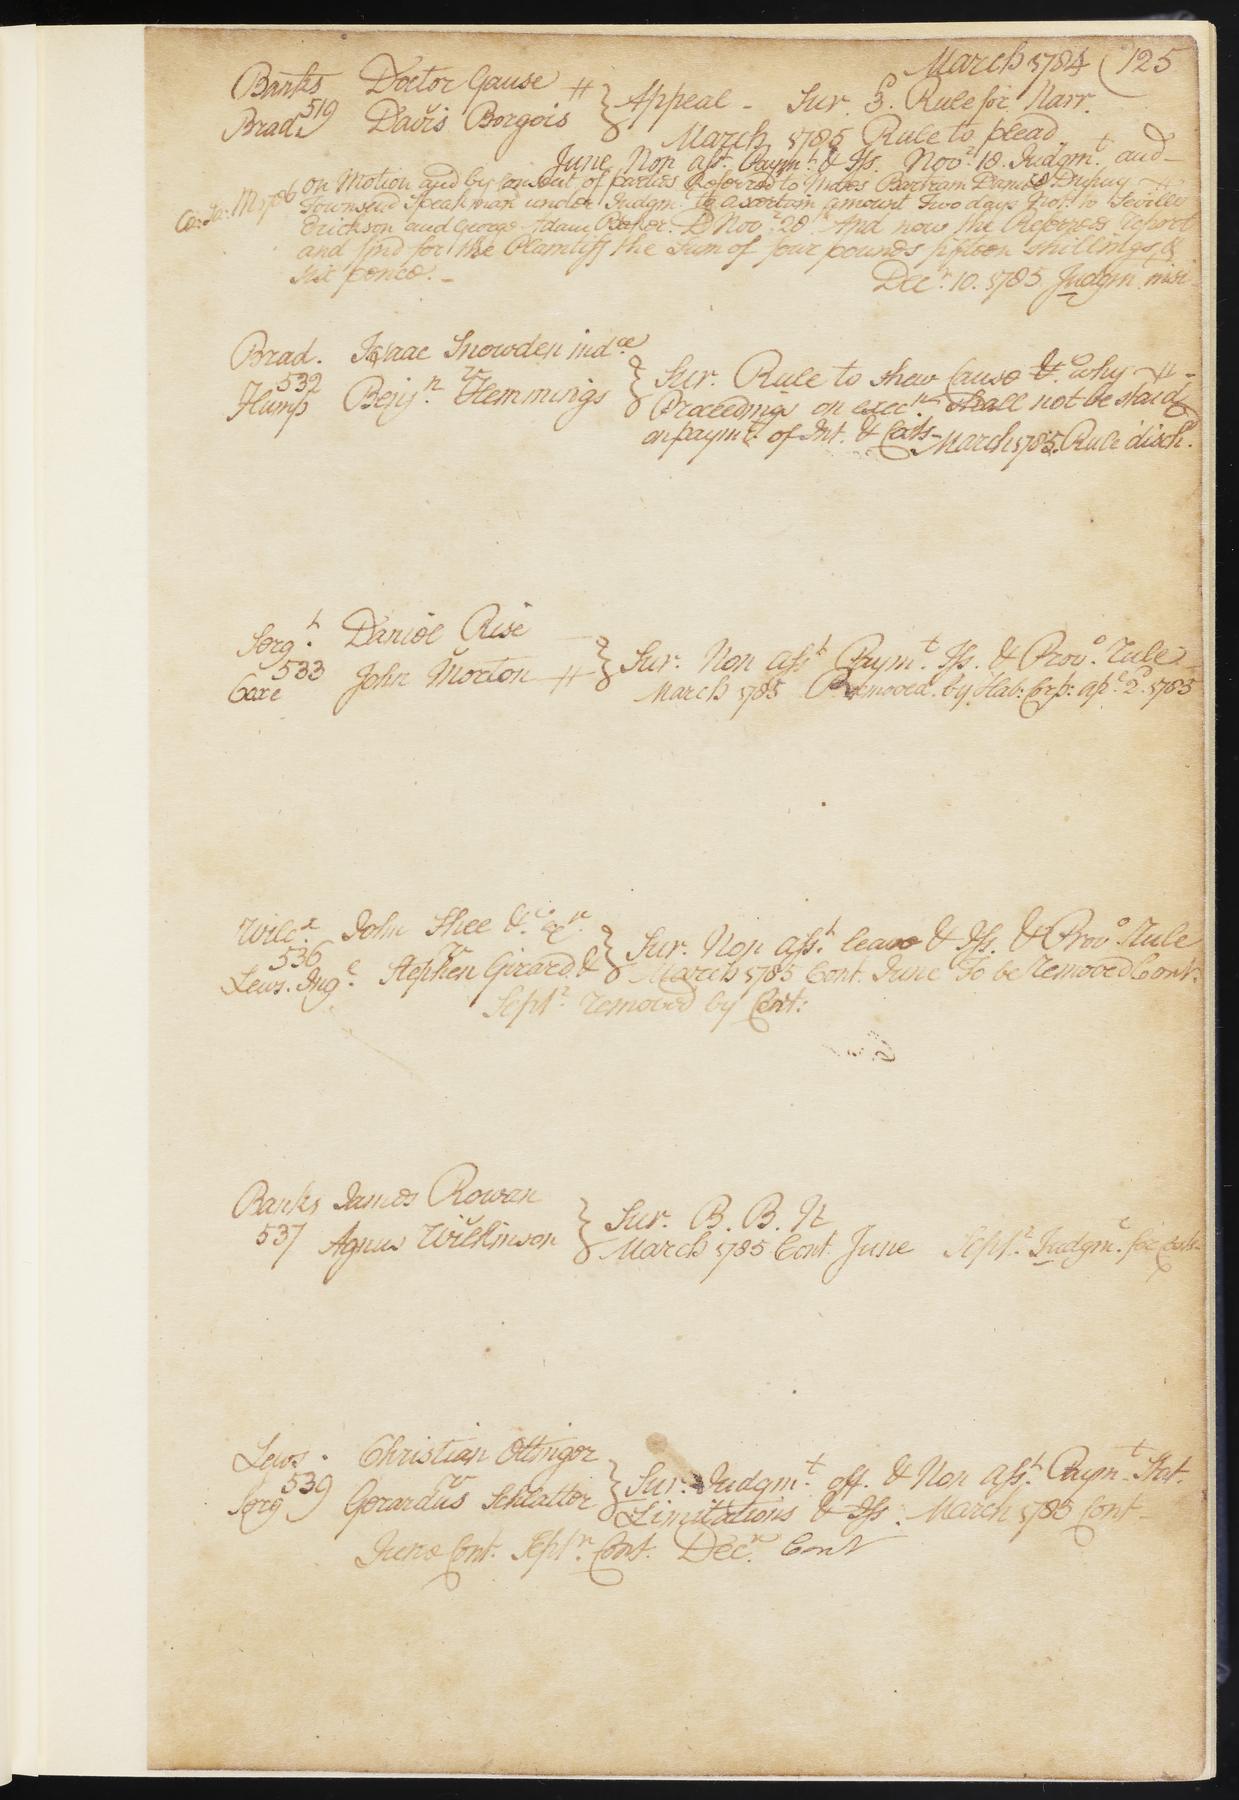 March 1784 (125
Banks Doctor Gause # } Appeal - Sur. 3.d Rule for Narr.
519
Brad. Davis Borgois March 1785 Rule to plead
June Non ass.t Paym.t & Iss. Nov.r 18. Judgm.t and
Ca: Sa: M 1786 On Motion and by consent of parties Referred to Moses Bartram Daniel Drepuy
Townsend Speakman under Judgm.t to ascertain amount two days not. to Seviler
Erickson and George Adam Baker. D Nov.r 28. And now the Referees report
and find for the Plantiff the Sum of four pounds fifteen shillings &
six pence. -
Dec.r 10. 1785 Judgm.t nisi
Brad. Isaac Snowden ind.ce } Sur. Rule to shew Cause &.c why #
532 v
Hump Benj.n Flemmings Proceedings on exec.n shall not be staid
on paym.t of Int. & Costs - March 1785. Rule disch.
Serg.t Daniel Rise } Sur. Non ass.t Paym.t Iss. & Prov.o Rule
533 v
Coxe John Morton # March 1785 Removed by Hab: Corp: ap.l 2.d 1785
Wilc.x John Shee &.c } Sur. Non ass.t leave & Iss. & Prov.o Rule
536 v
Lews. Ing.l Stephen Girard &.c March 1785 Cont. June To be removed Cont.
Sept.r removed by Cert:
Banks James Rowan } Sur. B. B. N
537 v
Agnus Wilkinson March 1785 Cont. June Sept.r Judgm.t for Costs
Lews. Christian Ottinger } Sur. Judgm.t off. & Non ass.t Paym.t Stat.
539 v
Serg Gerardus Schlatter Limitations & Iss. March 1785 Cont
June Cont. Sept.r Cont. Dec.r Cont